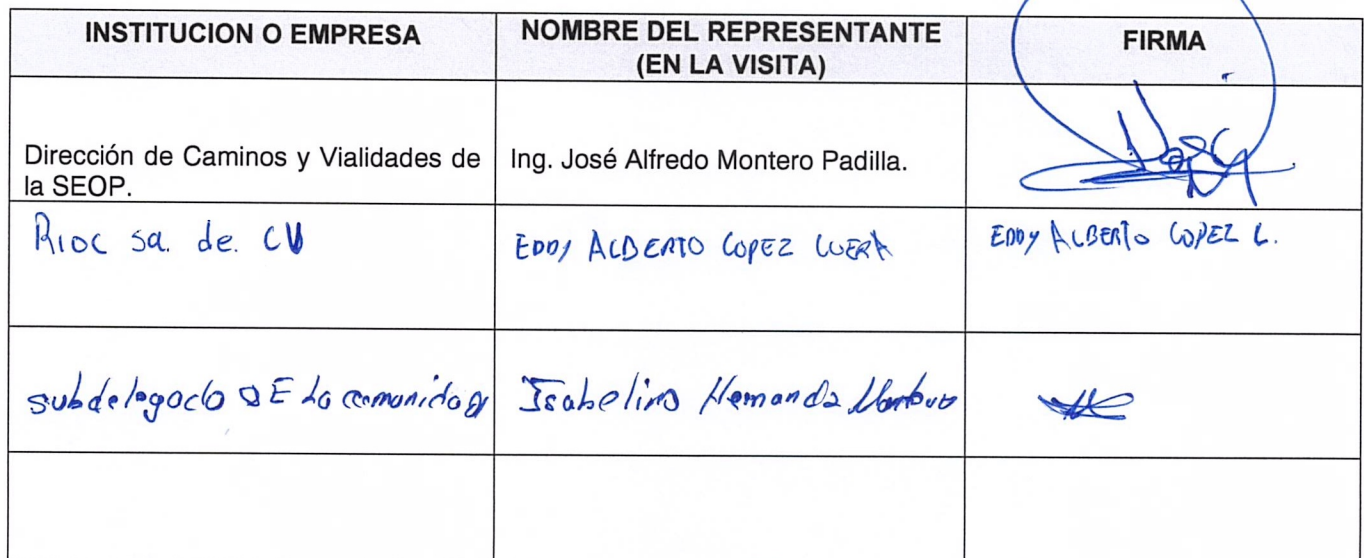 INSTITUCION O EMPRESA
NOMBRE DEL REPRESENTANTE
(EN LA VISITA)
FIRMA
Dirección de Caminos y Vialidades de
la SEOP.
Ing. José Alfredo Montero Padilla.
Rioc sa. de. CV
EDDY ALBERTO LOPEZ
EDDY ALBERTO LOPEZ L.
subdelegado DE La comunidad
Isabelino Hernandz